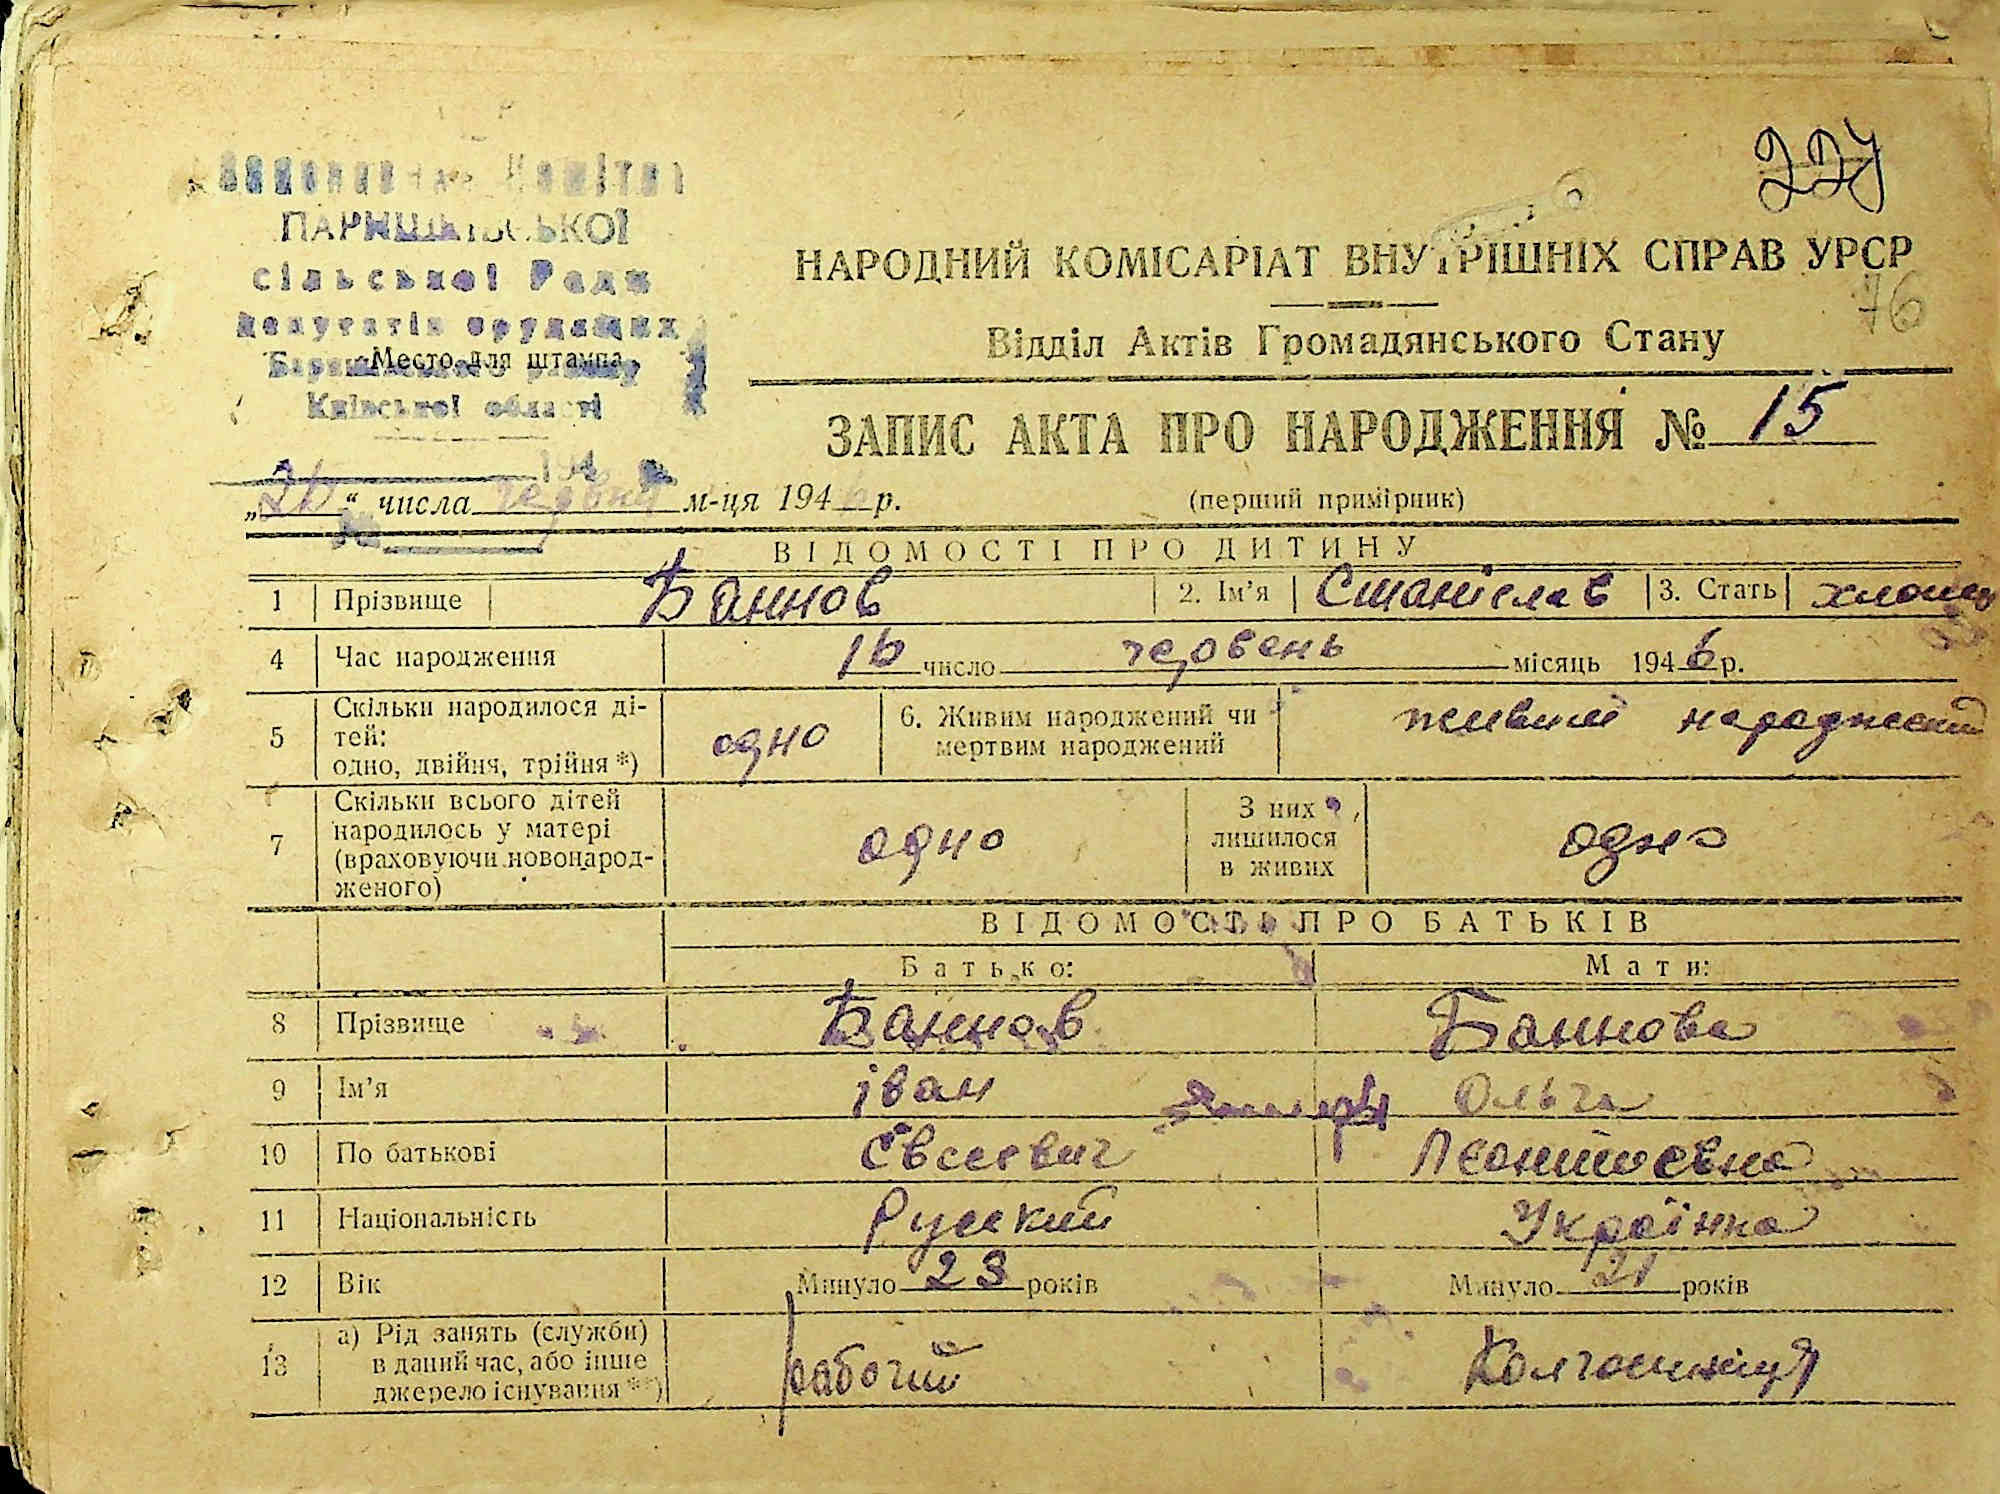 227
76
Виконавчий Комітет
ПАРИШКІВСЬКОЇ
сільської Ради
депутатів трудящих
Баришівського району
Київської області
Место для штампа
194
НАРОДНИЙ КОМІСАРІАТ ВНУТРІШНІХ СПРАВ УРСР
Відділ Актів Громадянського Стану
ЗАПИС АКТА ПРО НАРОДЖЕННЯ № 15
„26“ числа червня м-ця 1946 р. (перший примірник)
ВІДОМОСТІ ПРО ДИТИНУ
1 Прізвище Баннов 2. Ім'я Станіслав 3. Стать хлопец
4 Час народження 16 число червень місяць 1946 р.
5 Скільки народилося дітей: одно, двійня, трійня *) одно 6. Живим народжений чи мертвим народжений живий народжений
7 Скільки всього дітей народилось у матері (враховуючи новонародженого) одно З них лишилося в живих одно
ВІДОМОСТЬ ПРО БАТЬКІВ
Батько: Мати:
8 Прізвище Баннов Баннова
9 Ім'я Іван Ольга
10 По батькові Євсеевич
11 Національність Руський Українка
12 Вік Минуло 23 років Минуло 21 років
13 а) Рід занять (служби) в даний час, або інше джерело існування **) рабочий Колгоспниця